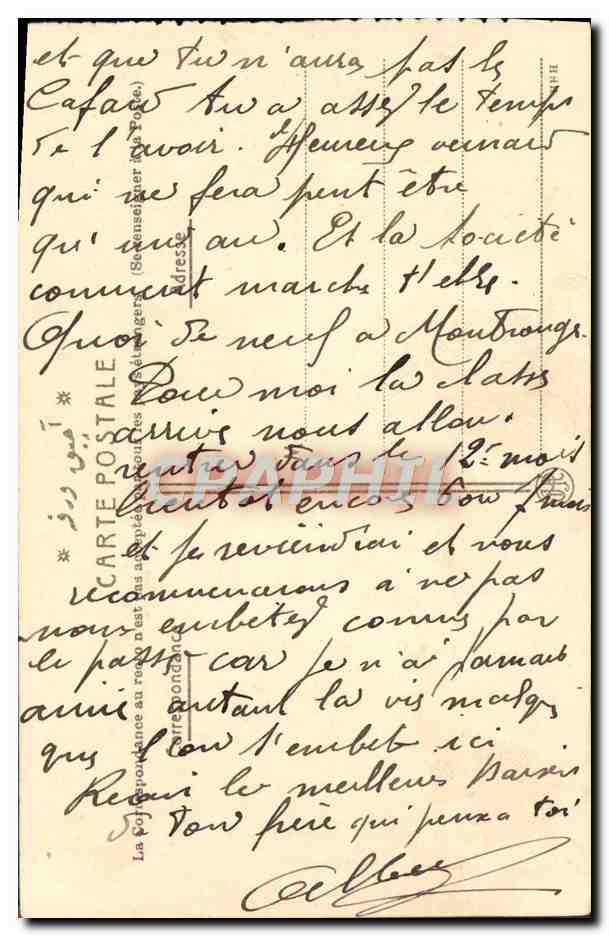 et que tu n'aura pas le
Cafard tu a assez le temps
de l'avoir. Heureux veinard
qui ne fera peut être
qu'un an. Et la Société
comment marche t'elle.
Quoi de neuf a Montrouge.
Pour moi la classe
arrive nous allons
rentrer dans le 12e mois
bientot encore bon mois
et je reviendrai et nous
recommencerons à ne pas
nous embeter comme par
le passé car je n'ai jamais
aimé autant la vie malgré
que l'on s'embete ici
Reçois les meilleurs Baisers
de ton frère qui pense a toi
Albert
CARTE POSTALE
La Correspondance au recto n'est pas acceptée par tous les pays étrangers. (Se renseigner à la Poste.)
Correspondance
Adresse
CPAPHIL